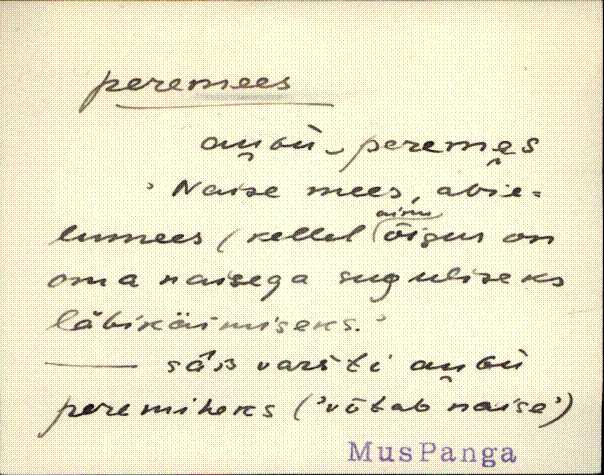 peremees
au̯bü-peremęs
'Naise mees, abie-
lumees (kellel ainu õigus on
oma naisega suguliseks
läbikäimiseks.'
—— sä̆ɜ varsti au̯bü
peremiheks ('võtab naise')
MusPanga